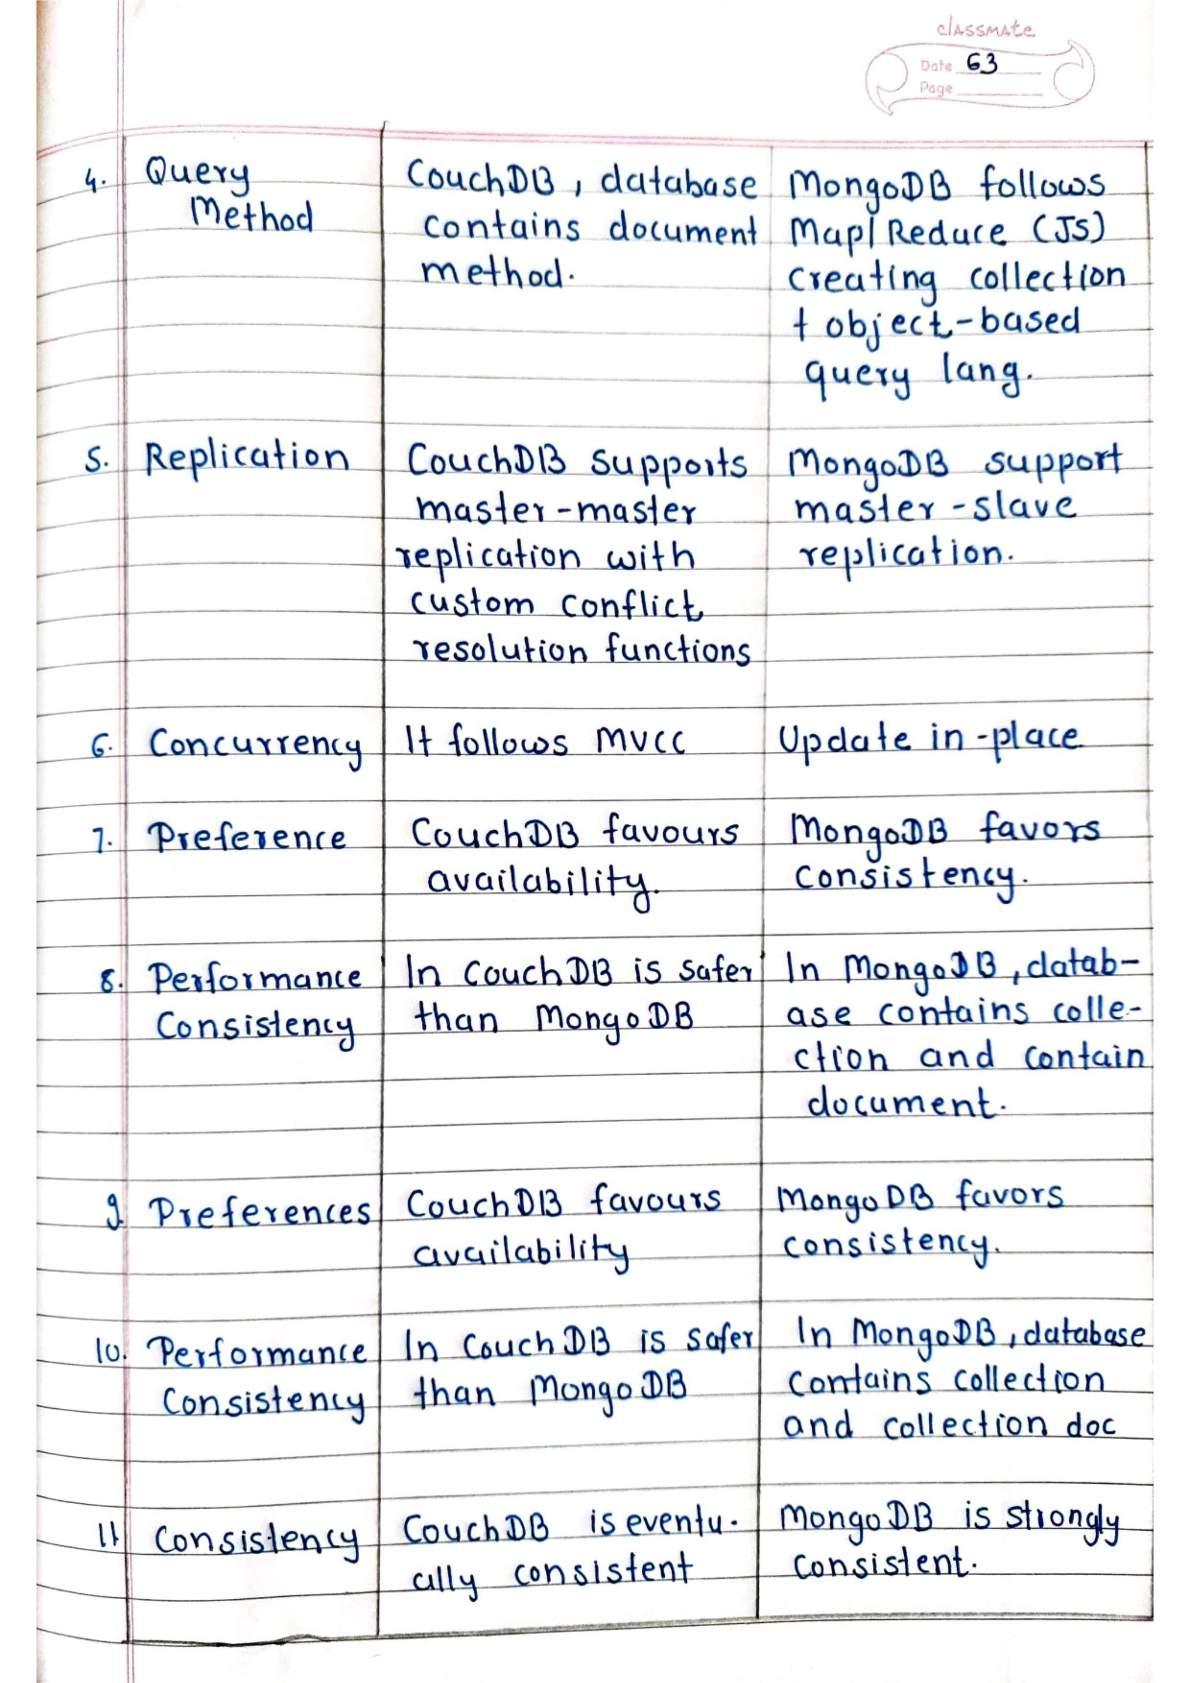 classmate
Date 63
Page
4. Query Method
CouchDB, database
contains document
method.
MongoDB follows
Map/Reduce (JS)
creating collection
+ object-based
query lang.
5. Replication
CouchDB supports
master-master
replication with
custom conflict
resolution functions
MongoDB support
master-slave
replication.
6. Concurrency
It follows MVCC
Update in-place
7. Preference
CouchDB favours
availability.
MongoDB favors
consistency.
8. Performance
Consistency
In CouchDB is safer
than MongoDB
In MongoDB, datab-
ase contains colle-
ction and contain
document.
9. Preferences
CouchDB favours
availability
MongoDB favors
consistency.
10. Performance
Consistency
In CouchDB is safer
than MongoDB
In MongoDB, database
contains collection
and collection doc
11 Consistency
CouchDB is eventu-
ally consistent
MongoDB is strongly
consistent.